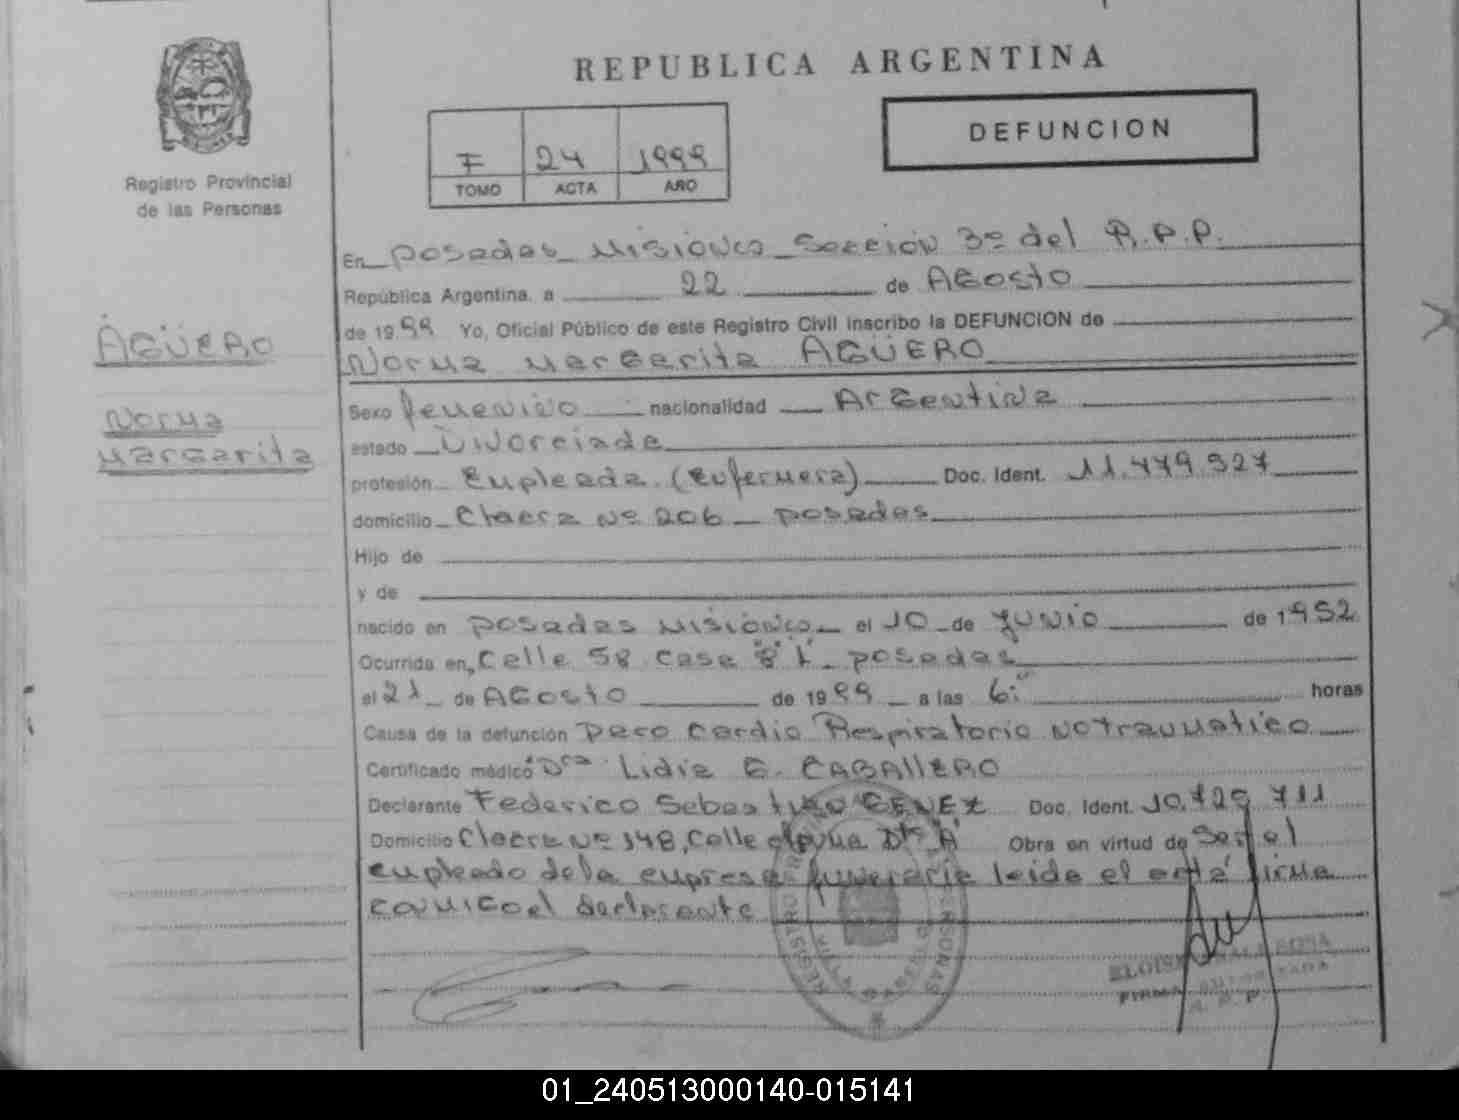 REPUBLICA ARGENTINA
DEFUNCION
F 24 1999
TOMO ACTA AÑO
Registro Provincial
de las Personas
AGÜERO
Norma
Margarita
En Posadas Misiones Sección 3º del R.P.P.
República Argentina, a 22 de Agosto
de 1999 Yo, Oficial Público de este Registro Civil inscribo la DEFUNCION de
Norma Margarita AGÜERO
Sexo femenino nacionalidad Argentina
estado Divorciada
profesión Empleada (enfermera) Doc. Ident. 11.479.327
domicilio Chacra Nº 206 - Posadas
Hijo de
y de
nacido en Posadas Misiones el 10 de Junio de 1952
Ocurrida en, Calle 58 Casa "8" Posadas
el 21 de Agosto de 1999 a las 6: horas
Causa de la defunción Paro Cardio Respiratorio no traumatico
Certificado médico Dra Lidia E. CABALLERO
Declarante Federico Sebastian Doc. Ident. 10.729.711
Domicilio Chacra Nº 148, Calle Obra en virtud de Ser el
empleado de la empresa funeraria leida el acta firma
conmigo el declarante
REGISTRO PERSONAS
POSADAS
FIRMA AUTORIZADA
R. P. P.
01_240513000140-015141